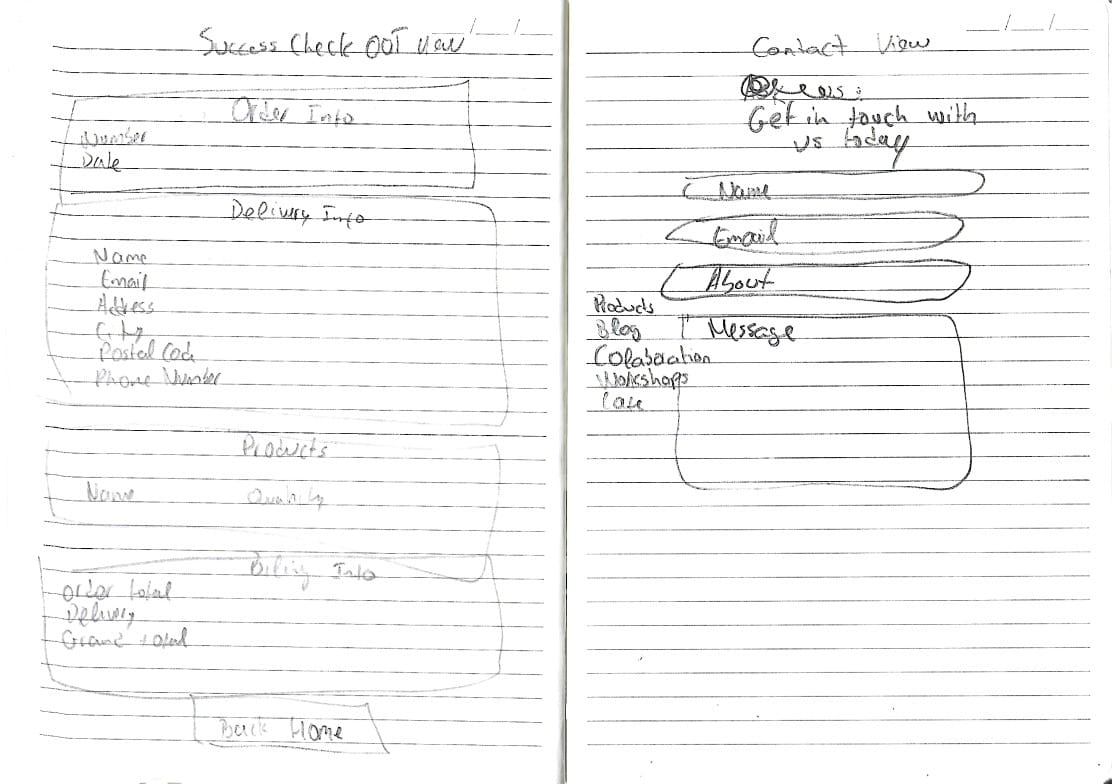 Success Check OOT View
Order Info
Number
Date
Delivery Info
Name
Email
Address
City
Postal Code
Phone Number
Products
Name Quantity
Biling Info
Order total
Delivery
Grand total
Back Home
__/__/__
Contact View
Get in touch with
us today
Name
Email
About
Products
Blog
Message
Colaboration
Workshops